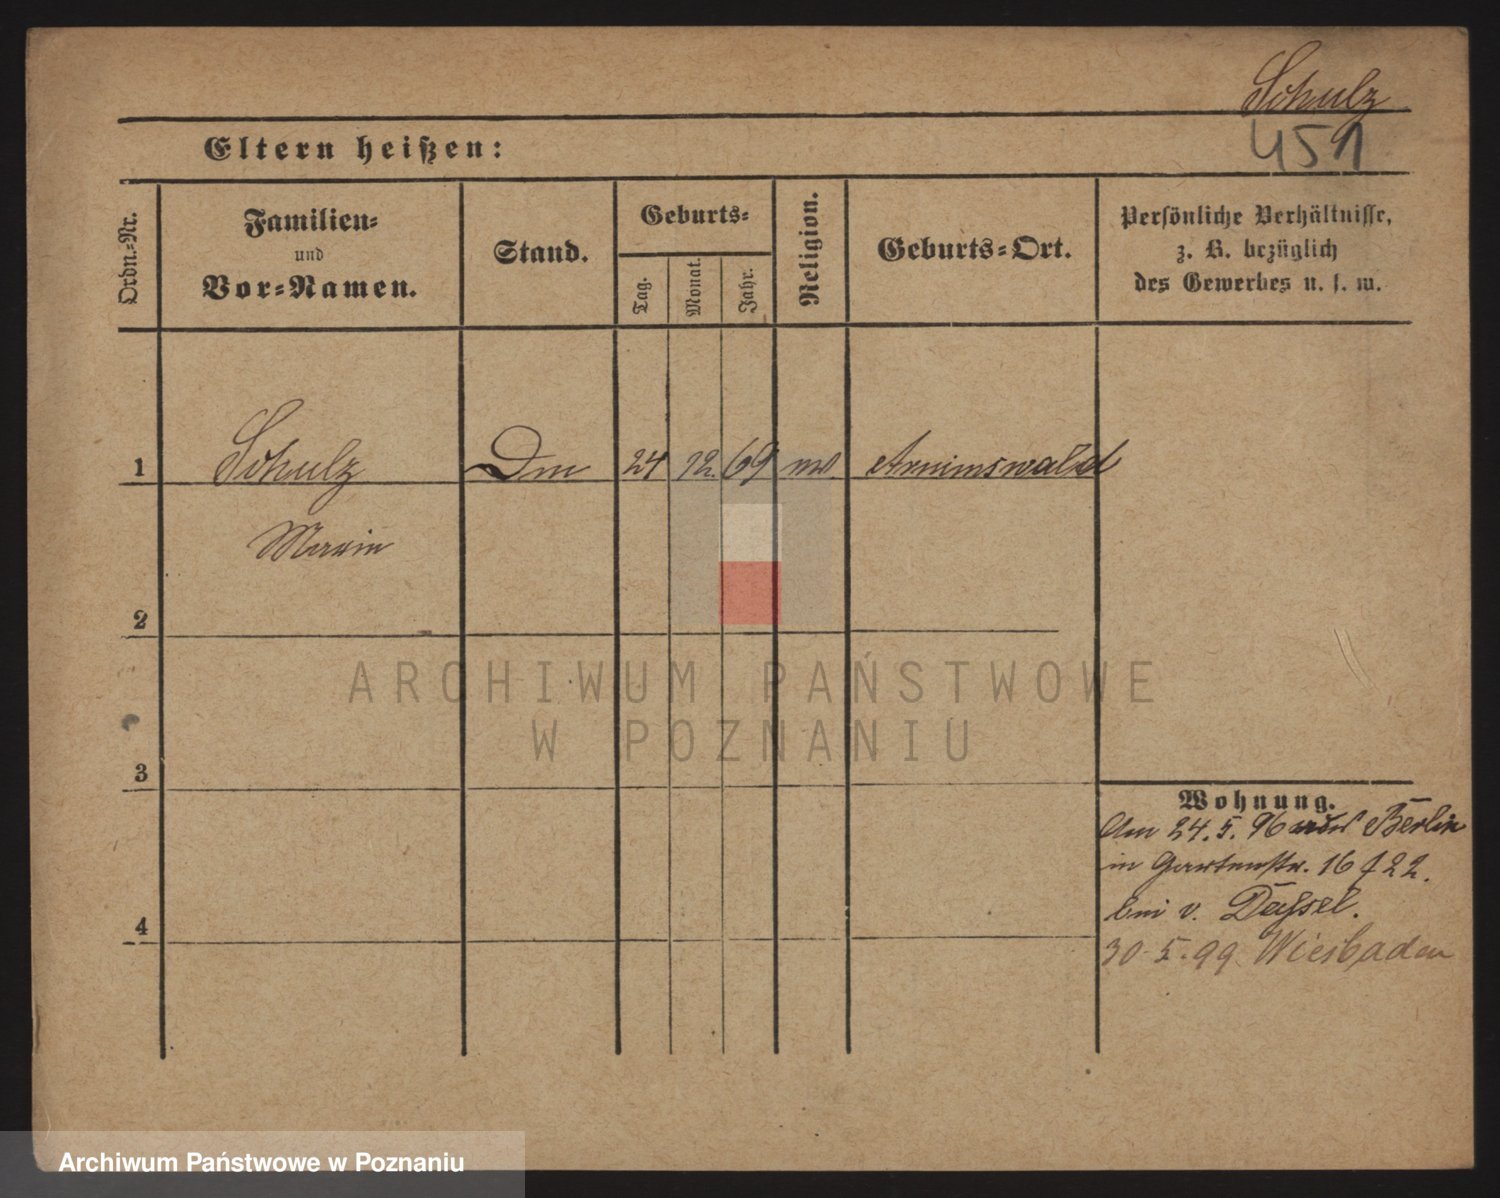 Schulz
451
Eltern heißen:
Ordn.-Nr.
Familien-
und
Vor-Namen.
Stand.
Geburts-
Tag.
Monat.
Jahr.
Religion.
Geburts-Ort.
Persönliche Verhältnisse,
z. B. bezüglich
des Gewerbes u. s. w.
1 Schulz 24 12. 69 Arnimswald
Marie
2
3
4
ARCHIWUM PAŃSTWOWE
W POZNANIU
Wohnung.
Am 24. 5. 96 Berlin
in Gartenstr. 16 22.
bei v. Dassel.
30. 5. 99. Wiesbaden
Archiwum Państwowe w Poznaniu